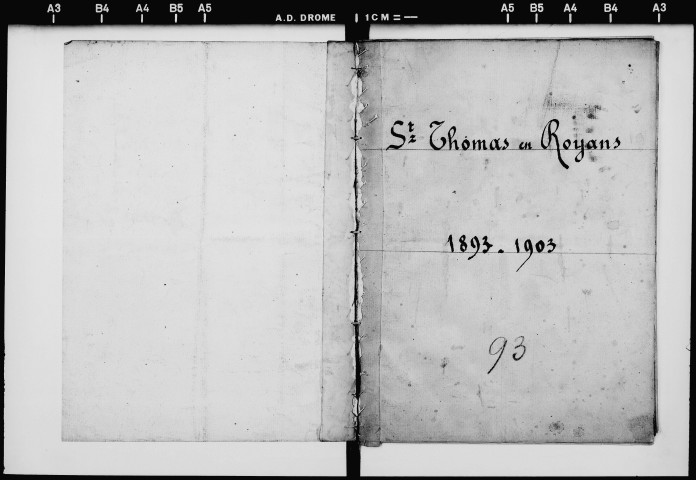 A3 B4 A4 B5 A5 A.D. DROME 1 CM = — A5 B5 A4 B4 A3
St Thomas en Royans
1893 - 1903
93